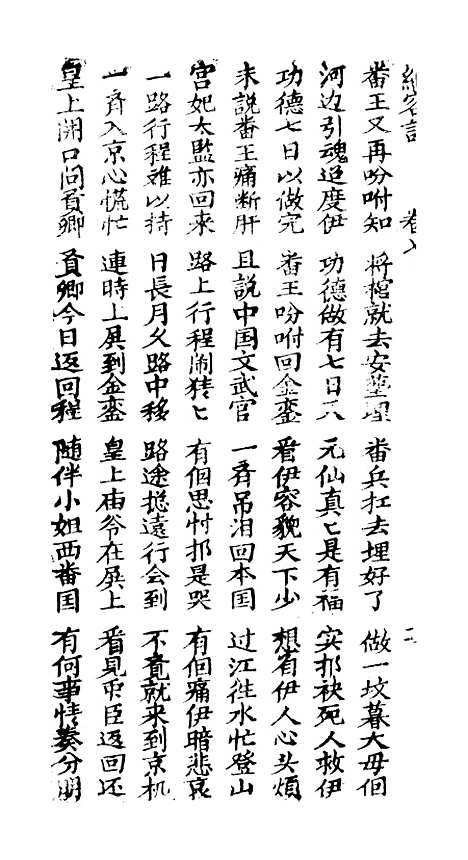 言 卷 二
番王又再吩咐知 将棺就去安塟埋 番兵扛去埋好了 做一坟墓大毋佪
河边引魂迢度伊 功德做有七日久 元仙真匕是有福 实抑袂死人救伊
功德七日以做完 番王吩咐回金銮 看伊容貌天下少 想着伊人心头煩
未説番王痛断肝 且説中国文武官 一齐吊泪回本囯 过江徃水忙登山
宫妃太監亦回来 路上行程闹猜匕 有佪思忖抑是哭 有佪痛伊暗悲哀
一路行程难以持 日長月久路中移 路途揔遠行会到 不竟就来到京机
一齐入京心慌忙 連時上展到金銮 皇上甫爷在展上 看見臣返回还
皇上開口问負卿 負卿今日返回程 随伴小姐西番囯 有何事情奏分明